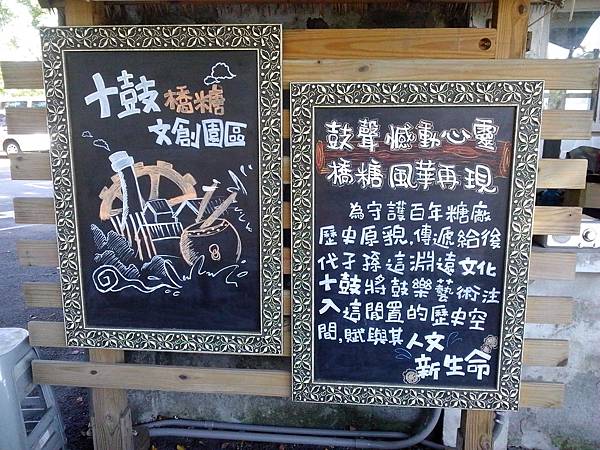 十鼓橋糖
文創園區
鼓聲憾動心靈
橋糖風華再現
為守護百年糖廠
歷史原貌,傳遞給後
代子孫這淵遠文化
十鼓將鼓樂藝術注
入這閒置的歷史空
間,賦與其人文
新生命